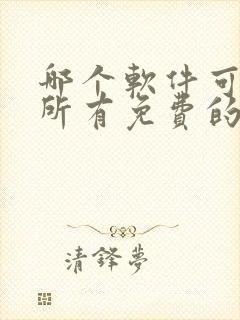 哪个軟件可
所有免費的
清鋒夢